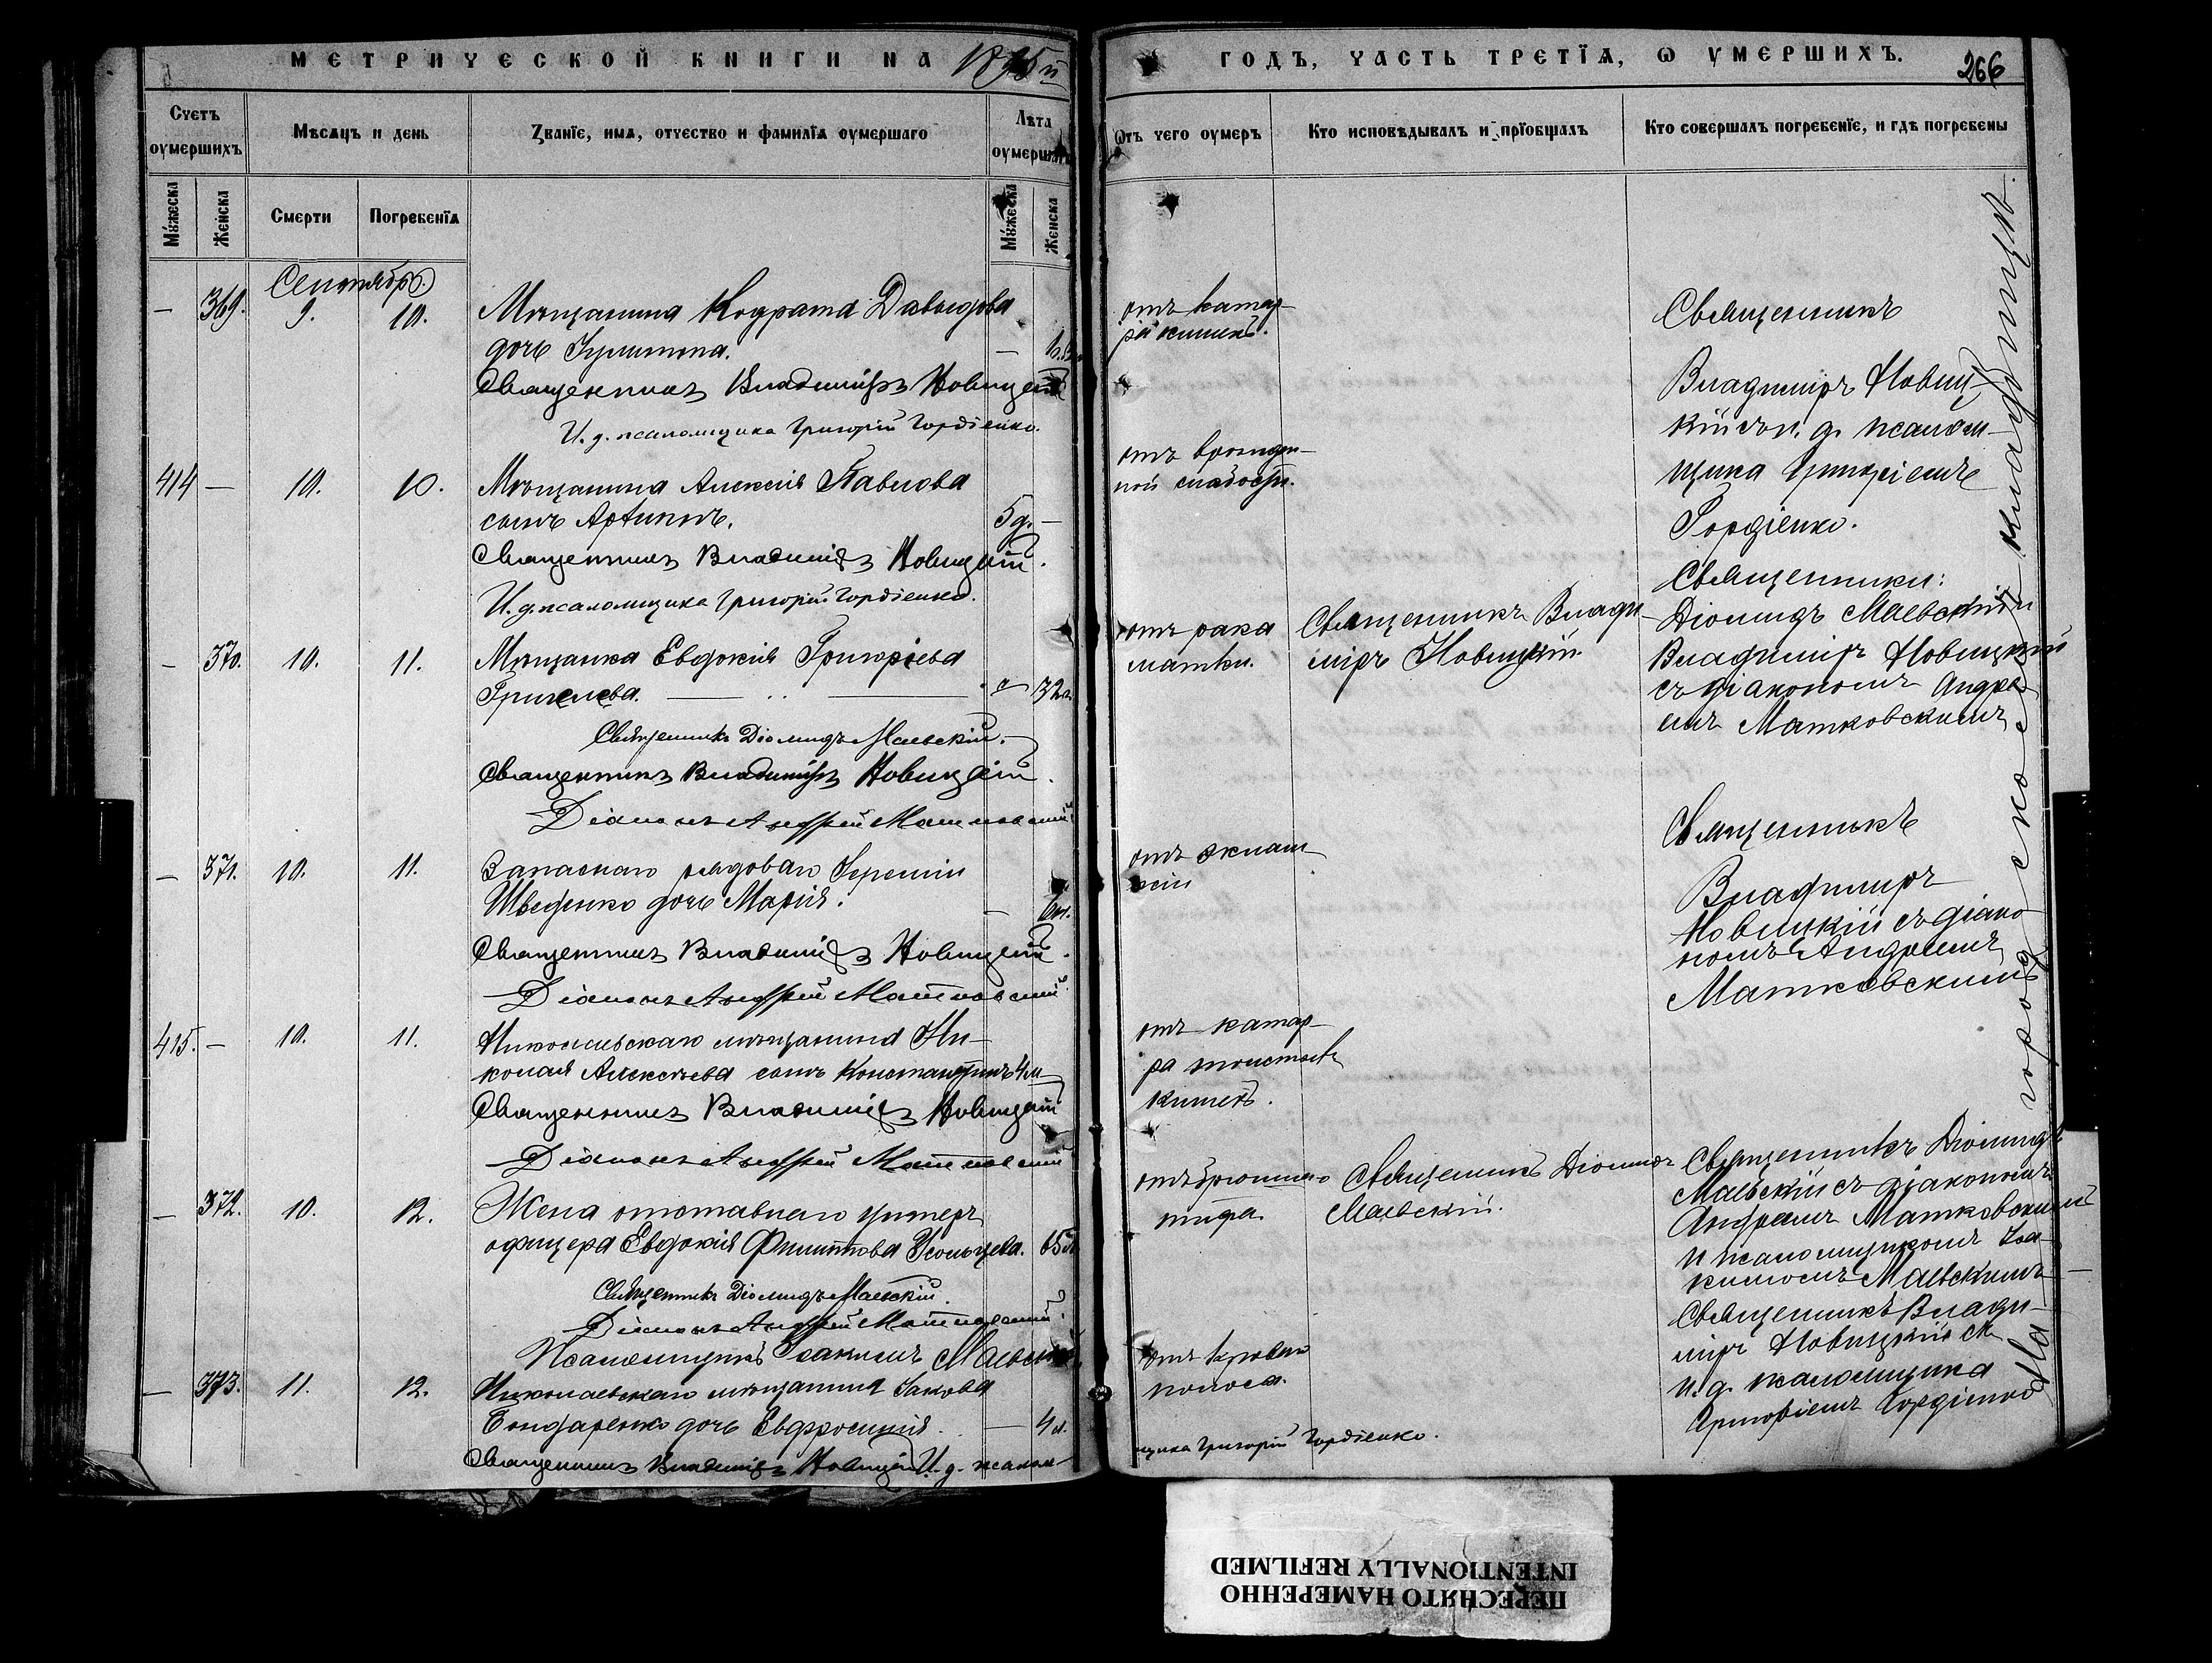 МЕТРИЧЕСКОЙ КНИГИ НА 1895й ГОДЪ, ЧАСТЬ ТРЕТІѦ, Ѡ УМЕРШИХЪ. 266
Счетъ оумершихъ
Мѣсѧцъ и день
Званіе, имѧ, отчество и фамиліѧ оумершаго
Лѣта оумершаго
Ѿтъ чего оумеръ
Кто исповѣдывалъ и прїобщалъ
Кто совершалъ погребеніе, и гдѣ погребены
Мꙋжеска
Женска
Смерти
Погребеніѧ
Мꙋжеска
Женска
Сентябрь.
— 369. 9. 10. Мѣщанина Кодрата Давыдова
дочь —
Священникъ Владиміръ Новицкій
И. д. псаломщика Григорій Гордіенко.
отъ катар-
ра кишекъ.
Священникъ
Владиміръ Новиц-
кій съ и. д. псалом-
щика Григоріемъ
Гордіенко.
414 — 10. 10. Мѣщанина Алексія Павлова
сынъ 5 д. —
Священникъ Владиміръ Новицкій.
И. д. псаломщика Григорій Гордіенко.
отъ врожден-
ной слабости.
— 370. 10. 11. Мѣщанка Евдокія Григоріева
32 л.
Священникъ Діомидъ Маевскій.
Священникъ Владиміръ Новицкій.
Діаконъ Андрей Матковскій
отъ рака
матки.
Священникъ Влади-
міръ Новицкій
Священники:
Діомидъ Маевскій и
Владиміръ Новицкій
съ діакономъ Андре-
емъ Матковскимъ
— 371. 10. 11. Запаснаго рядоваго
Шведенко дочь Марія. —
Священникъ Владиміръ Новицкій.
Діаконъ Андрей Матковскій
отъ эклам-
псіи
Священникъ
Владиміръ
Новицкій съ діако-
номъ Андреемъ
Матковскимъ
415. — 10. 11. Николаевскаго мѣщанина Ни-
колая Алексѣева сынъ Константинъ 4 м
Священникъ Владиміръ Новицкій
Діаконъ Андрей Матковскій
отъ катар-
ра толстыхъ
кишекъ.
— 372. 10. 12. Жена отставнаго унтеръ
офицера Евдокія Филиппова Усольцева. 65 л.
Священникъ Діомидъ Маевскій.
Діаконъ Андрей Матковскій.
Псаломщикъ Іоакимъ Маевскій
отъ брюшнаго
тифа.
Священникъ Діомидъ
Маевскій.
Священникъ Діомидъ
Маевскій съ діакономъ
Андреемъ Матковскимъ
и псаломщикомъ Іоа-
кимомъ Маевскимъ
— 373. 11. 12. Николаевскаго мѣщанина Іакова
Бондаренко дочь Евфросинія. —
Священникъ Владиміръ Новицкій И. д. псалом-
щика Григорій Гордіенко.
отъ кроваваго
поноса.
Священникъ Влади-
міръ Новицкій съ
и. д. псаломщика
Григоріемъ Гордіенко
На городскомъ кладбищѣ.
ПЕРЕСНЯТО НАМЕРЕННО
INTENTIONALLY REFILMED